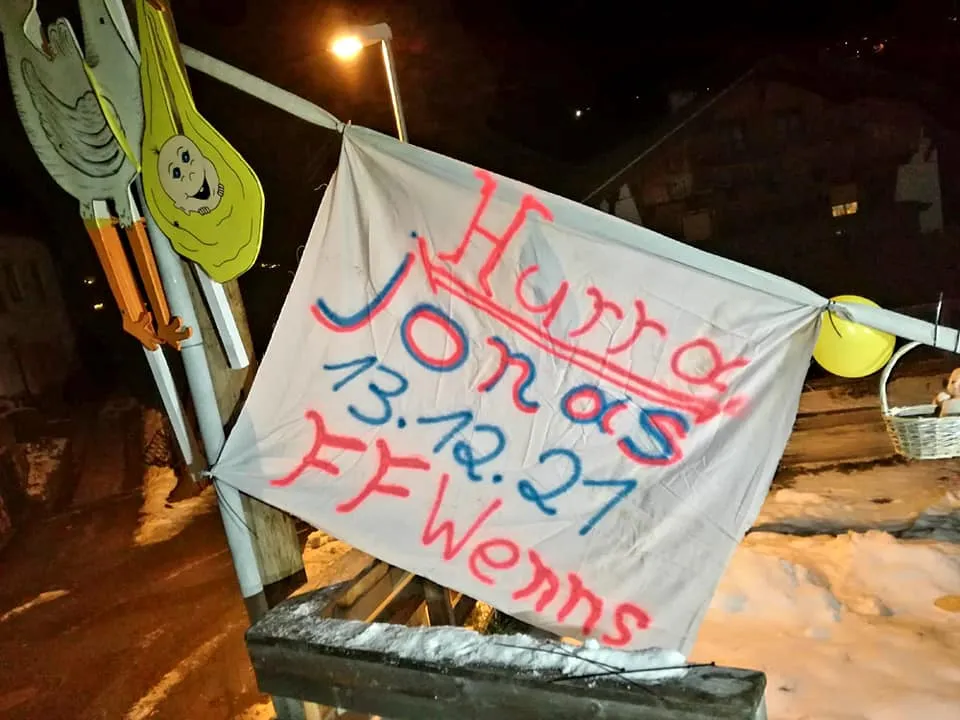 Hurra
Jonas
13.12.21
FF Wenns